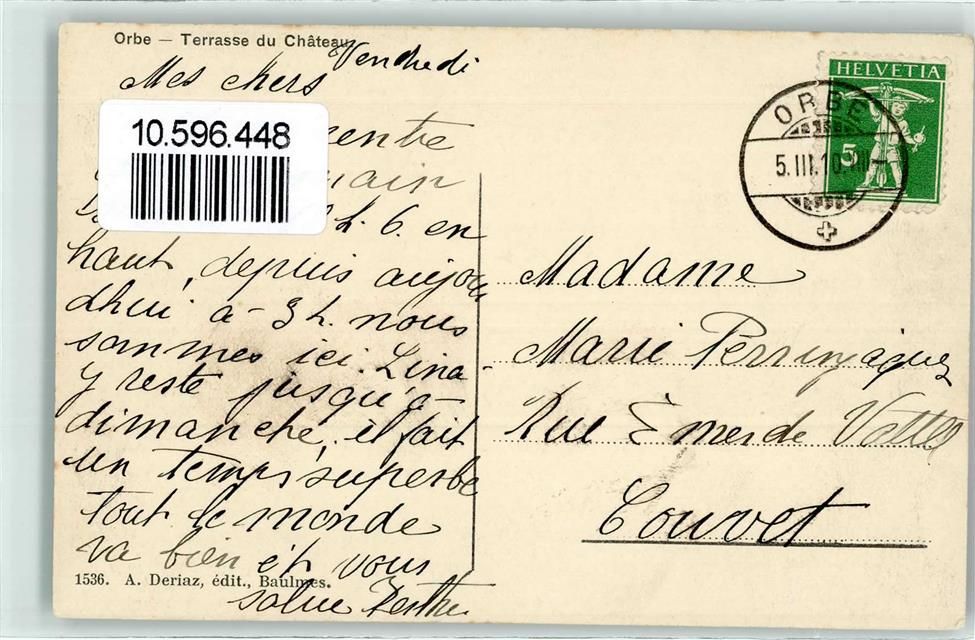 Orbe — Terrasse du Château
Vendredi
Mes chers
10.596.448
entre
h. 6. en
haut, depuis aujou
dhui à - 3 h. nous
sommes ici. Lina
y reste jusqu'à
dimanche, il fait
un temps superbe
tout le monde
va bien et vous
salue
1536. A. Deriaz, édit., Baulmes.
HELVETIA
5
ORBE
5.III.10.
Madame
Marie Perrinjaquet
Rue Emer de Vattel
Couvet